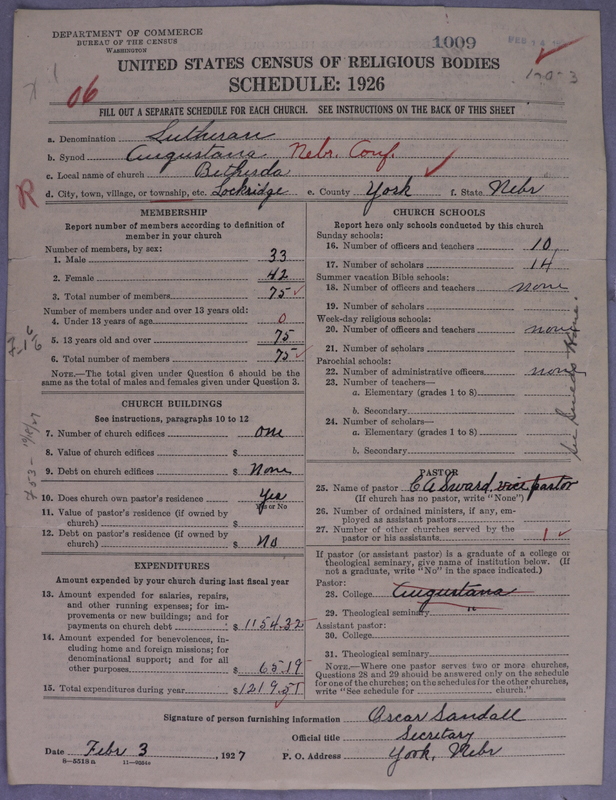 DEPARTMENT OF COMMERCE
BUREAU OF THE CENSUS
WASHINGTON
1009
FEB 1
UNITED STATES CENSUS OF RELIGIOUS BODIES
SCHEDULE: 1926
120-3
06
FILL OUT A SEPARATE SCHEDULE FOR EACH CHURCH. SEE INSTRUCTIONS ON THE BACK OF THIS SHEET
a. Denomination Lutheran
b. Synod Augustana Nebr. Conf.
c. Local name of church Bethesda
R
d. City, town, village, or township, etc. Lockridge e. County York f. State Nebr
MEMBERSHIP
Report number of members according to definition of
member in your church
Number of members, by sex:
1. Male 33
2. Female 42
3. Total number of members 75
Number of members under and over 13 years old:
4. Under 13 years of age 0
5. 13 years old and over 75
6. Total number of members 75
NOTE.—The total given under Question 6 should be the
same as the total of males and females given under Question 3.
CHURCH BUILDINGS
See instructions, paragraphs 10 to 12
7. Number of church edifices one
8. Value of church edifices $
9. Debt on church edifices $ None
10. Does church own pastor's residence Yes
Yes or No
11. Value of pastor's residence (if owned by
church) $
12. Debt on pastor's residence (if owned by
church) $ No
EXPENDITURES
Amount expended by your church during last fiscal year
13. Amount expended for salaries, repairs,
and other running expenses; for im-
provements or new buildings; and for
payments on church debt $ 1154.32
14. Amount expended for benevolences, in-
cluding home and foreign missions; for
denominational support; and for all
other purposes $ 65.19
15. Total expenditures during year $ 1219.51
CHURCH SCHOOLS
Report here only schools conducted by this church
Sunday schools:
16. Number of officers and teachers 10
17. Number of scholars 14
Summer vacation Bible schools:
18. Number of officers and teachers none
19. Number of scholars
Week-day religious schools:
20. Number of officers and teachers none
21. Number of scholars
Parochial schools:
22. Number of administrative officers none
23. Number of teachers—
a. Elementary (grades 1 to 8)
b. Secondary
24. Number of scholars—
a. Elementary (grades 1 to 8)
b. Secondary
PASTOR
25. Name of pastor C A Sward, vice pastor
(If church has no pastor, write "None")
26. Number of ordained ministers, if any, em-
ployed as assistant pastors
27. Number of other churches served by the
pastor or his assistants 1
If pastor (or assistant pastor) is a graduate of a college or
theological seminary, give name of institution below. (If
not a graduate, write "No" in the space indicated.)
Pastor:
28. College Augustana
29. Theological seminary "
Assistant pastor:
30. College
31. Theological seminary
NOTE.—Where one pastor serves two or more churches,
Questions 28 and 29 should be answered only on the schedule
for one of the churches; on the schedules for the other churches,
write "See schedule for church."
Signature of person furnishing information Oscar Sandall
Official title Secretary
Date Febr 3, 1927 P. O. Address York, Nebr
8-5518a